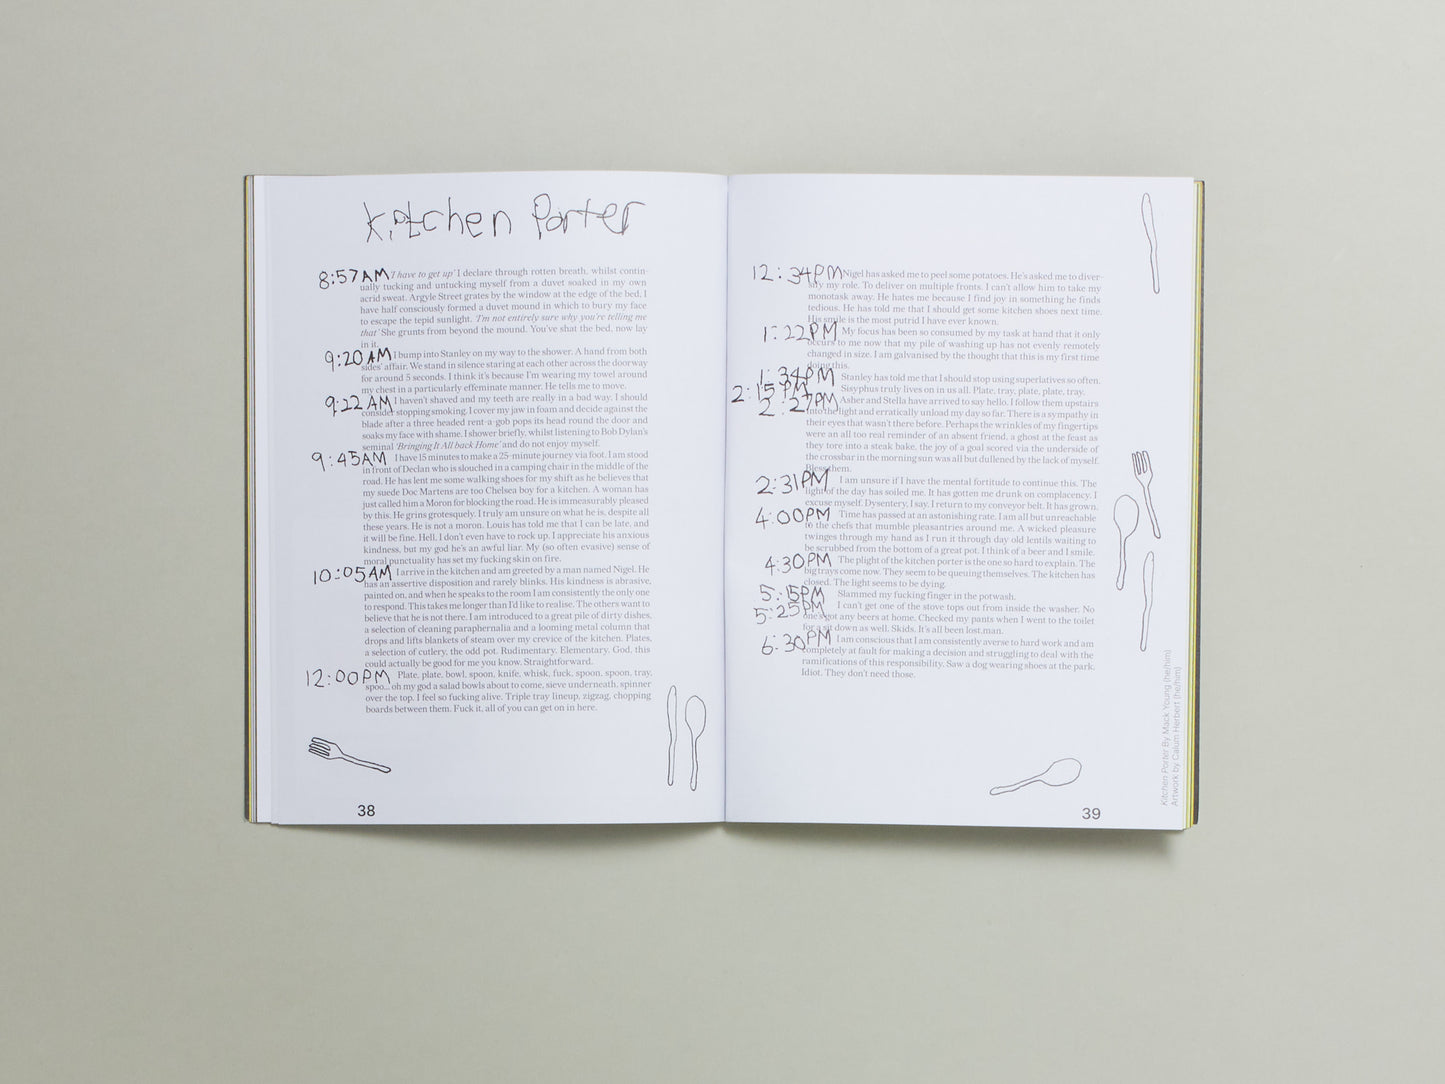 Kitchen Porter
8:57AM 'I have to get up' I declare through rotten breath, whilst contin-
ually tucking and untucking myself from a duvet soaked in my own
acid sweat. Argyle Street grates by the window at the edge of the bed. I
have half consciously formed a duvet mound in which to bury my face
to escape the tepid sunlight. 'I'm not entirely sure why you're telling me
that' She grunts from beyond the mound. You've shat the bed, now lay
in it.
9:20AM I bump into Stanley on my way to the shower. A hand from both
sides' affair. We stand in silence staring at each other across the doorway
for around 5 seconds. I think it's because I'm wearing my towel around
my chest in a particularly effeminate manner. He tells me to move.
9:22AM I haven't shaved and my teeth are really in a bad way. I should
consider stopping smoking. I cover my jaw in foam and decide against the
blade after a three headed rent-a-gob pops its head round the door and
soaks my face with shame. I shower briefly, whilst listening to Bob Dylan's
seminal 'Bringing It All back Home' and do not enjoy myself.
9:45AM I have 15 minutes to make a 25-minute journey via foot. I am stood
in front of Declan who is slouched in a camping chair in the middle of the
road. He has lent me some walking shoes for my shift as he believes that
my suede Doc Martens are too Chelsea boy for a kitchen. A woman has
just called him a Moron for blocking the road. He is immeasurably pleased
by this. He grins grotesquely. I truly am unsure on what he is, despite all
these years. He is not a moron. Louis has told me that I can be late, and
it will be fine. Hell, I don't even have to rock up. I appreciate his anxious
kindness, but my god he's an awful liar. My (so often evasive) sense of
moral punctuality has set my fucking skin on fire.
10:05AM I arrive in the kitchen and am greeted by a man named Nigel. He
has an assertive disposition and rarely blinks. His kindness is abrasive,
painted on, and when he speaks to the room I am consistently the only one
to respond. This takes me longer than I'd like to realise. The others want to
believe that he is not there. I am introduced to a great pile of dirty dishes,
a selection of cleaning paraphernalia and a looming metal column that
drops and lifts blankets of steam over my crevice of the kitchen. Plates,
a selection of cutlery, the odd pot. Rudimentary. Elementary. God, this
could actually be good for me you know. Straightforward.
12:00PM Plate, plate, bowl, spoon, knife, whisk, fuck, spoon, spoon, tray,
spoo... oh my god a salad bowls about to come, sieve underneath, spinner
over the top. I feel so fucking alive. Triple tray lineup, zigzag, chopping
boards between them. Fuck it, all of you can get on in here.
38
12:34PM Nigel has asked me to peel some potatoes. He's asked me to diver-
sify my role. To deliver on multiple fronts. I can't allow him to take my
monotask away. He hates me because I find joy in something he finds
tedious. He has told me that I should get some kitchen shoes next time.
His smile is the most putrid I have ever known.
1:22PM My focus has been so consumed by my task at hand that it only
occurs to me now that my pile of washing up has not evenly remotely
changed in size. I am galvanised by the thought that this is my first time
doing this.
1:34PM Stanley has told me that I should stop using superlatives so often.
2:15PM Sisyphus truly lives on in us all. Plate, tray, plate, plate, tray.
2:27PM Asher and Stella have arrived to say hello. I follow them upstairs
into the light and erratically unload my day so far. There is a sympathy in
their eyes that wasn't there before. Perhaps the wrinkles of my fingertips
were an all too real reminder of an absent friend, a ghost at the feast as
they tore into a steak bake, the joy of a goal scored via the underside of
the crossbar in the morning sun was all but dullened by the lack of myself.
Bless them.
2:31PM I am unsure if I have the mental fortitude to continue this. The
light of the day has soiled me. It has gotten me drunk on complacency. I
excuse myself. Dysentery, I say. I return to my conveyor belt. It has grown.
4:00PM Time has passed at an astonishing rate. I am all but unreachable
to the chefs that mumble pleasantries around me. A wicked pleasure
twinges through my hand as I run it through day old lentils waiting to
be scrubbed from the bottom of a great pot. I think of a beer and I smile.
4:30PM The plight of the kitchen porter is the one so hard to explain. The
big trays come now. They seem to be queuing themselves. The kitchen has
closed. The light seems to be dying.
5:15PM Slammed my fucking finger in the potwash.
5:25PM I can't get one of the stove tops out from inside the washer. No
one's got any beers at home. Checked my pants when I went to the toilet
for a sit down as well. Skids. It's all been lost,man.
6:30PM I am conscious that I am consistently averse to hard work and am
completely at fault for making a decision and struggling to deal with the
ramifications of this responsibility. Saw a dog wearing shoes at the park.
Idiot. They don't need those.
Kitchen Porter By Mack Young (he/him)
Artwork by Calum Herbert (he/him)
39